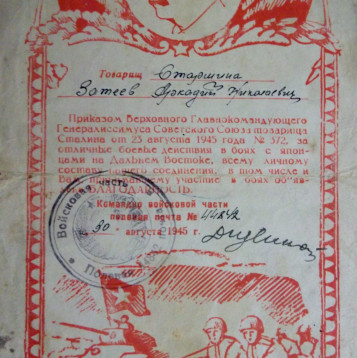 Товарищ Старшина
Затеев Аркадий
Приказом Верховного Главнокомандующего
Генералиссимуса Советского Союза товарища
Сталина от 23 августа 1945 года № 372, за
отличные боевые действия в боях с япон-
цами на Дальнем Востоке, всему личному
составу нашего соединения, в том числе и
Вам, принимавшему участие в боях об'яв-
БЛАГОДАРНОСТЬ.
Командир войсковой части
полевая почта №
30 августа 1945 г.
Войсковая часть
Полевая